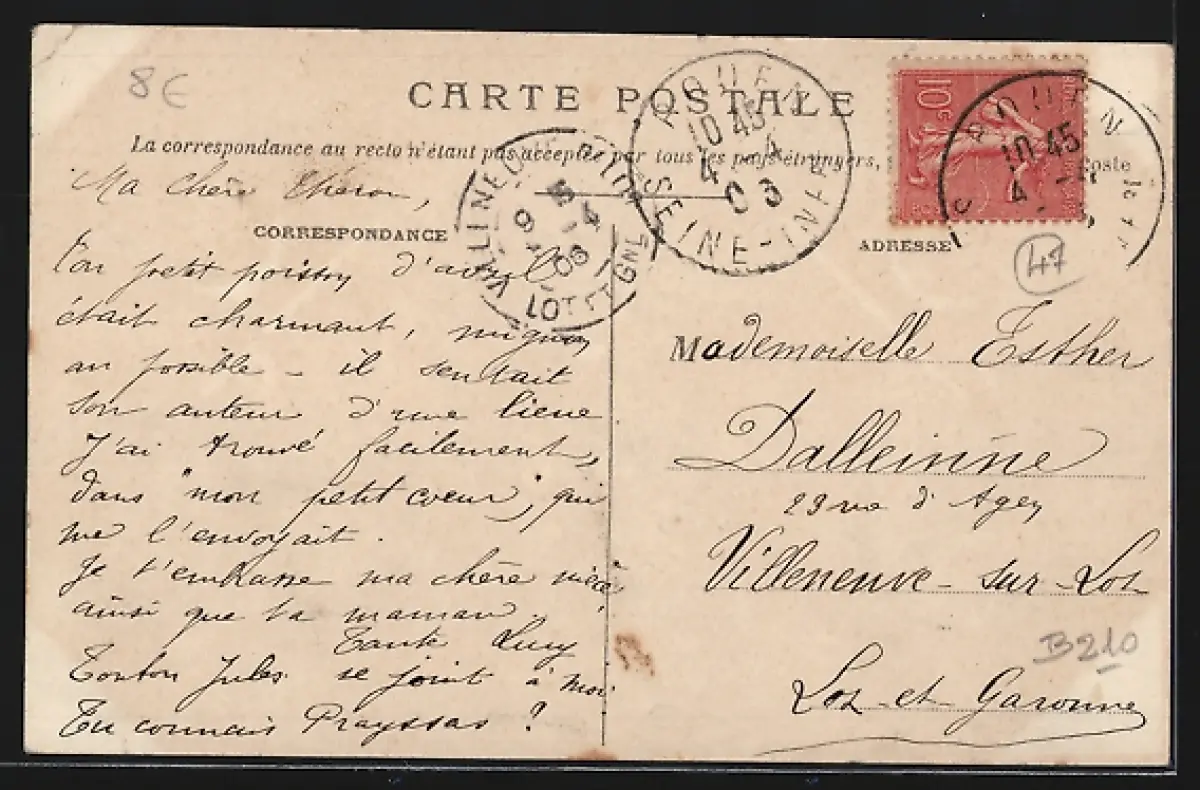 8€
CARTE POSTALE
La correspondance au recto n'étant pas acceptée par tous les pays étrangers,
Poste
Ma chère
CORRESPONDANCE
Ton petit poisson d'avril
était charmant, mignon
au possible - il sentait
son auteur d'une lieue
J'ai trouvé facilement,
dans "mon petit coeur", qui
me l'envoyait.
Je t'embrasse ma chère nièce
ainsi que ta maman
Tante Lucy
Tonton Jules se joint à moi
Tu connais Prayssas ?
VILLENEUVE
LOT ET GNE
ROUEN
10 45
4 - 4
SEINE-INFRE
10c
ROUEN
10 45
4
ADRESSE
47
Mademoiselle Esther
Dalleinne
29 rue d'Agen
Villeneuve-sur-Lot
B210
Lot-et-Garonne